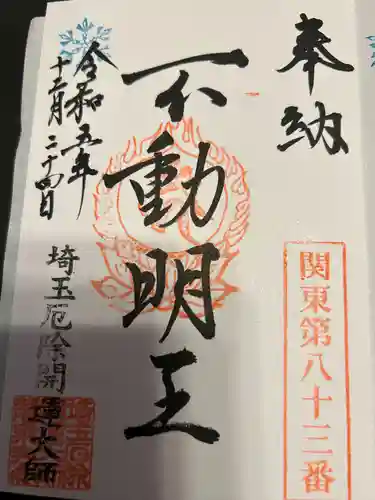 奉納
関東第八十三番
不動明王
令和五年
十二月二十四日
埼玉厄除開運大師